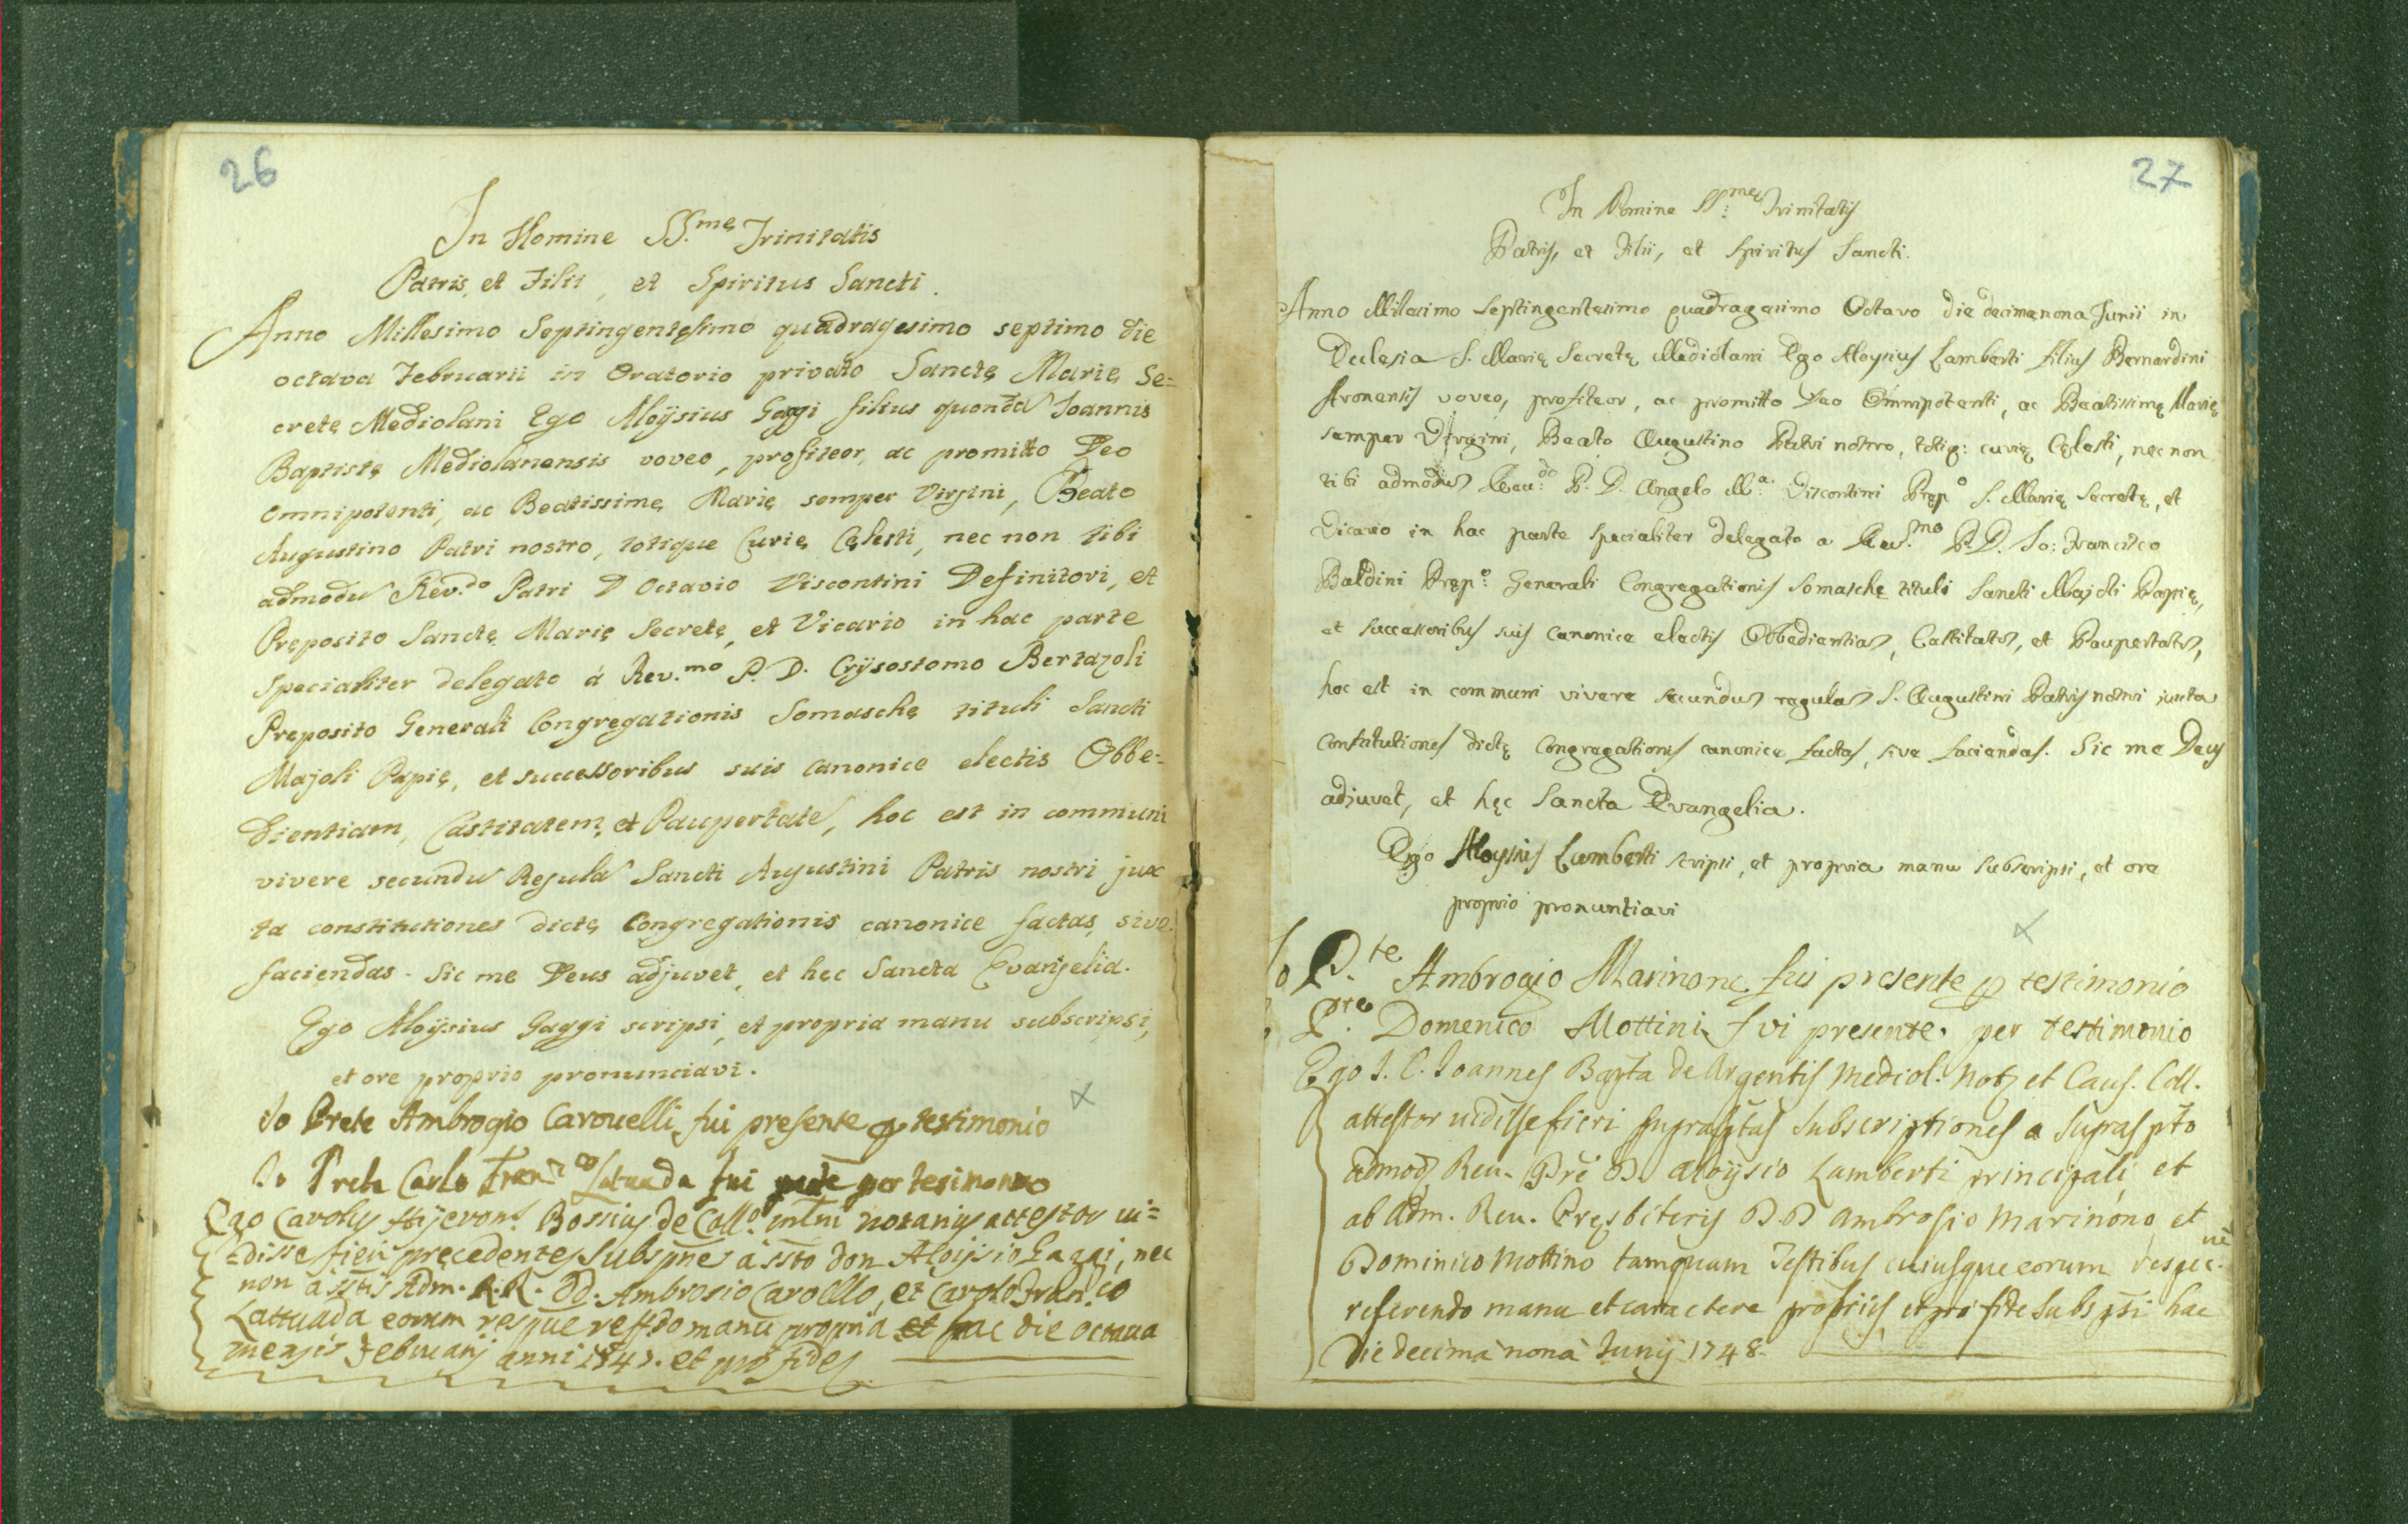 26
In Nomine SS.mę Trinitatis
Patris, et Filii, et Spiritus Sancti.
Anno Millesimo Septingentesimo quadragesimo septimo die
octava Februarii in Oratorio privato Sanctę Marię Se=
cretę Mediolani Ego Aloÿsius Gaggi filius quonda Joannis
Baptistę Mediolanensis voveo, profiteor, ac promitto Deo
omnipotenti, ac Beatissimę Marię semper Virgini, Beato
Augustino Patri nostro, totique Curię Cęlesti, nec non tibi
admodu Rev.do Patri D Octavio Viscontini Definitori, et
Pręposito Sanctę Marię Secretę, et Vicario in hac parte
specialiter delegato á Rev.mo P. D. Crÿsostomo Bertazoli
Pręposito Generali Congregationis Somaschę tituli Sancti
Majoli Papię, et successoribus suis canonice electis Obbe=
dientiam, Castitatem, et Paupertate, hoc est in communi
vivere secundu Regula Sancti Augustini Patris nostri jux
ta constitutiones dictę Congregationis canonice factas, sive
faciendas. Sic me Deus adjuvet, et hęc Sancta Evangelia.
Ego Aloÿsius Gaggi scripsi, et propria manu subscripsi,
et ore proprio pronunciavi.
Io Prete Ambrogio Carouelli fui presente p testimonio
Io Prete Carlo Fran.co Latuada fui pnte per tesimonio
Ego Carolus Hÿeron.s Bossius de Coll.o mlni notarius attestor ui=
=disse fieri pręcedentes subspnes à ssto Don Aloijsio Gaggi, nec
non à sstis Adm. R.R. DD. Ambrosio Caroello, et Carolo Fran.co
Lattuada eorum respue reffdo manu propria et hac die octaua
mensis Februarij anni 1747. et pro fide
27
In Nomine SS:mę Trinitatis
Patris, et Filii, et Spiritus Sancti.
Anno Millesimo Septingentesimo quadragesimo Octavo die decimanona Junii in
Ecclesia S. Marię Secretę Mediolani Ego Aloysius Lamberti filius Bernardini
voveo, profiteor, ac promitto Deo Omnipotenti, ac Beatissimę Marię
semper Virgini, Beato Augustino Patri nostro, totiq: curię Cęlesti, nec non
tibi admodu Reu:do P. D. Angelo M.a Viscontini Pręp.o S. Marię Secretę, et
Vicario in hac parte specialiter delegato a Reu.mo P. D. Jo: Francisco
Baldini Pręp.o Generali Congregationis Somaschę tituli Sancti Majoli Papię,
et successoribus suis canonice electis Obbedientia, Castitate, et Paupertate,
hoc est in communi vivere secundu regula S. Augustini Patris nostri juxta
constitutiones dictę Congregationis canonice factas, sive faciendas. Sic me Deus
adjuvet, et hęc Sancta Evangelia.
Ego Aloysius Lamberti scripsi, et propria manu subscripsi, et ore
proprio pronuntiavi
Io P.te Ambrogio Marinone fui presente p testimonio
P.te Domenico Mottini fui presente per testimonio
Ego J. C. Joannes Bapta de Argentis Mediol. Not. et Caus. Coll.
attestor uidisse fieri suprasptas subscriptiones a supraspto
admod. Reu. Prē D. Aloÿsio Lamberti principali et
ab Adm. Reu. Pręsbiteris D.D Ambrosio Marinono et
Dominico Mottino tamquam Testibus cuiusque eorum respec.ue
referendo manu et caractere proprijs et pro fide subspsi hac
Die decima nona Junij 1748.